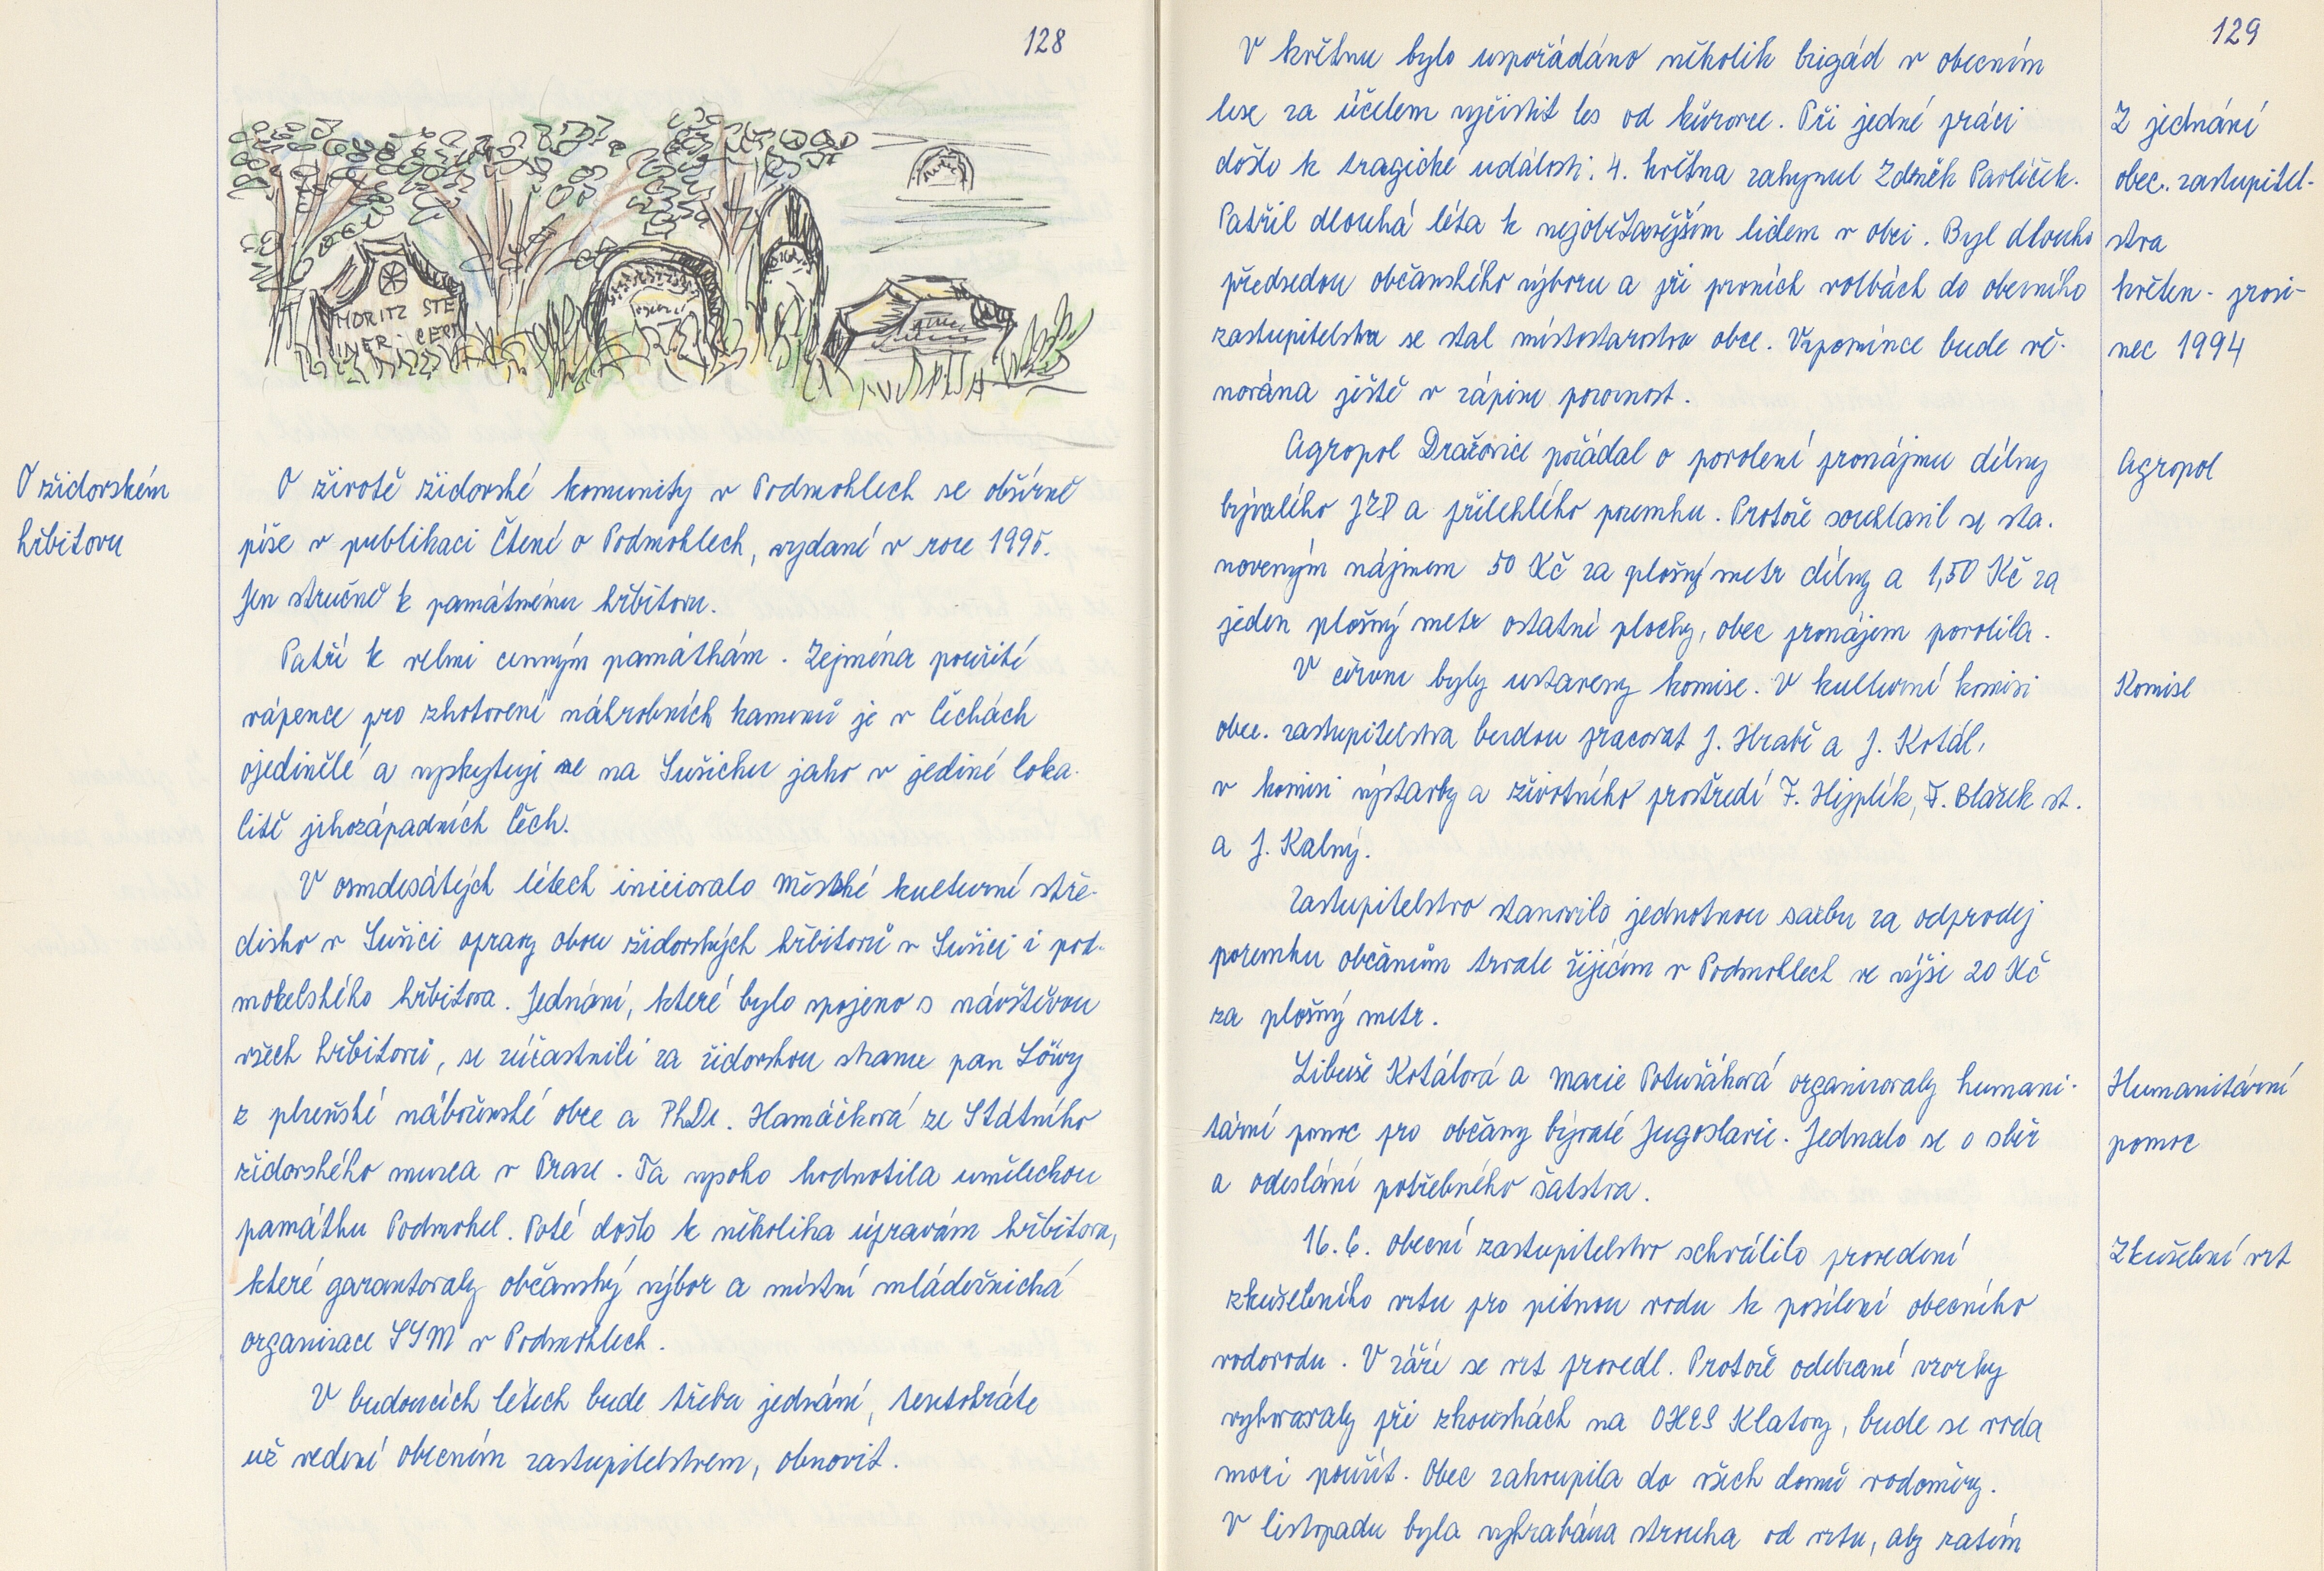 128
MORITZ STE
INER
O židovském
hřbitovu
O životě židovské komunity v Podmoklech se obšírně
píše v publikaci Čtení o Podmoklech, vydané v roce 1995.
Jen stručně k památnému hřbitovu.
Patří k velmi cenným památkám. Zejména použití
vápence pro zhotovení náhrobních kamenů je v Čechách
ojedinělé a vyskytuji se na Sušicku jako v jediné loka-
litě jihozápadních Čech.
V osmdesátých létech iniciovalo Městské kulturní stře-
disko v Sušici opravy obou židovských hřbitovů v Sušici i pod-
mokelského hřbitova. Jednání, které bylo spojeno s návštěvou
všech hřbitovů, se zúčastnili za židovskou stranu pan Löwy
z plzeňské náboženské obce a PhDr. Hamáčková ze Státního
židovského muzea v Praze. Ta vysoko hodnotila uměleckou
památku Podmokel. Poté došlo k několika úpravám hřbitova,
které garantovaly občanský výbor a místní mládežnická
organizace SSM v Podmoklech.
V budoucích létech bude třeba jednání, tentokráte
už vedení obecním zastupitelstvem, obnovit.
129
V květnu bylo uspořádáno několik brigád v obecním
lese za účelem vyčistit les od kůrovce. Při jedné práci
došlo k tragické události. 4. května zahynul Zdeněk Pavlíček.
Patřil dlouhá léta k nejobětavějším lidem v obci. Byl dlouho
předsedou občanského výboru a při prvních volbách do obecního
zastupitelstva se stal místostarostou obce. Vzpomínce bude vě-
nována ještě v zápisu pozornost.
Agropol Dražovice požádal o povolení pronájmu dílny
bývalého JZD a přilehlého pozemku. Protože souhlasil se sta-
noveným nájmem 50 Kč za plošný metr dílny a 1,50 Kč za
jeden plošný metr ostatní plochy, obec pronájem povolila.
V červnu byly ustaveny komise. V kulturní komisi
obec. zastupitelstva budou pracovat J. Hrabě a J. Kotál,
v komisi výstavby a životního prostředí F. Hejplík, F. Blažek st.
a J. Kalný.
Zastupitelstvo stanovilo jednotnou sazbu za odprodej
pozemku občanům trvale žijícím v Podmoklech ve výši 20 Kč
za plošný metr.
Libuše Kotálová a Marie Potužáková organizovaly humani-
tární pomoc pro občany bývalé Jugoslavie. Jednalo se o sběr
a odeslání potřebného šatstva.
16. 6. obecní zastupitelstvo schválilo provedení
zkušebního vrtu pro pitnou vodu k posílení obecního
vodovodu. V září se vrt provedl. Protože odebrané vzorky
vyhovovaly při zkouškách na OHES Klatovy, bude se voda
moci použít. Obec zakoupila do všech domů vodoměry.
V listopadu byla vyhrabána strouha od vrtu, aby zatím
Z jednání
obec. zastupitel-
stva
květen - prosi-
nec 1994
Agropol
Komise
Humanitární
pomoc
Zkušební vrt